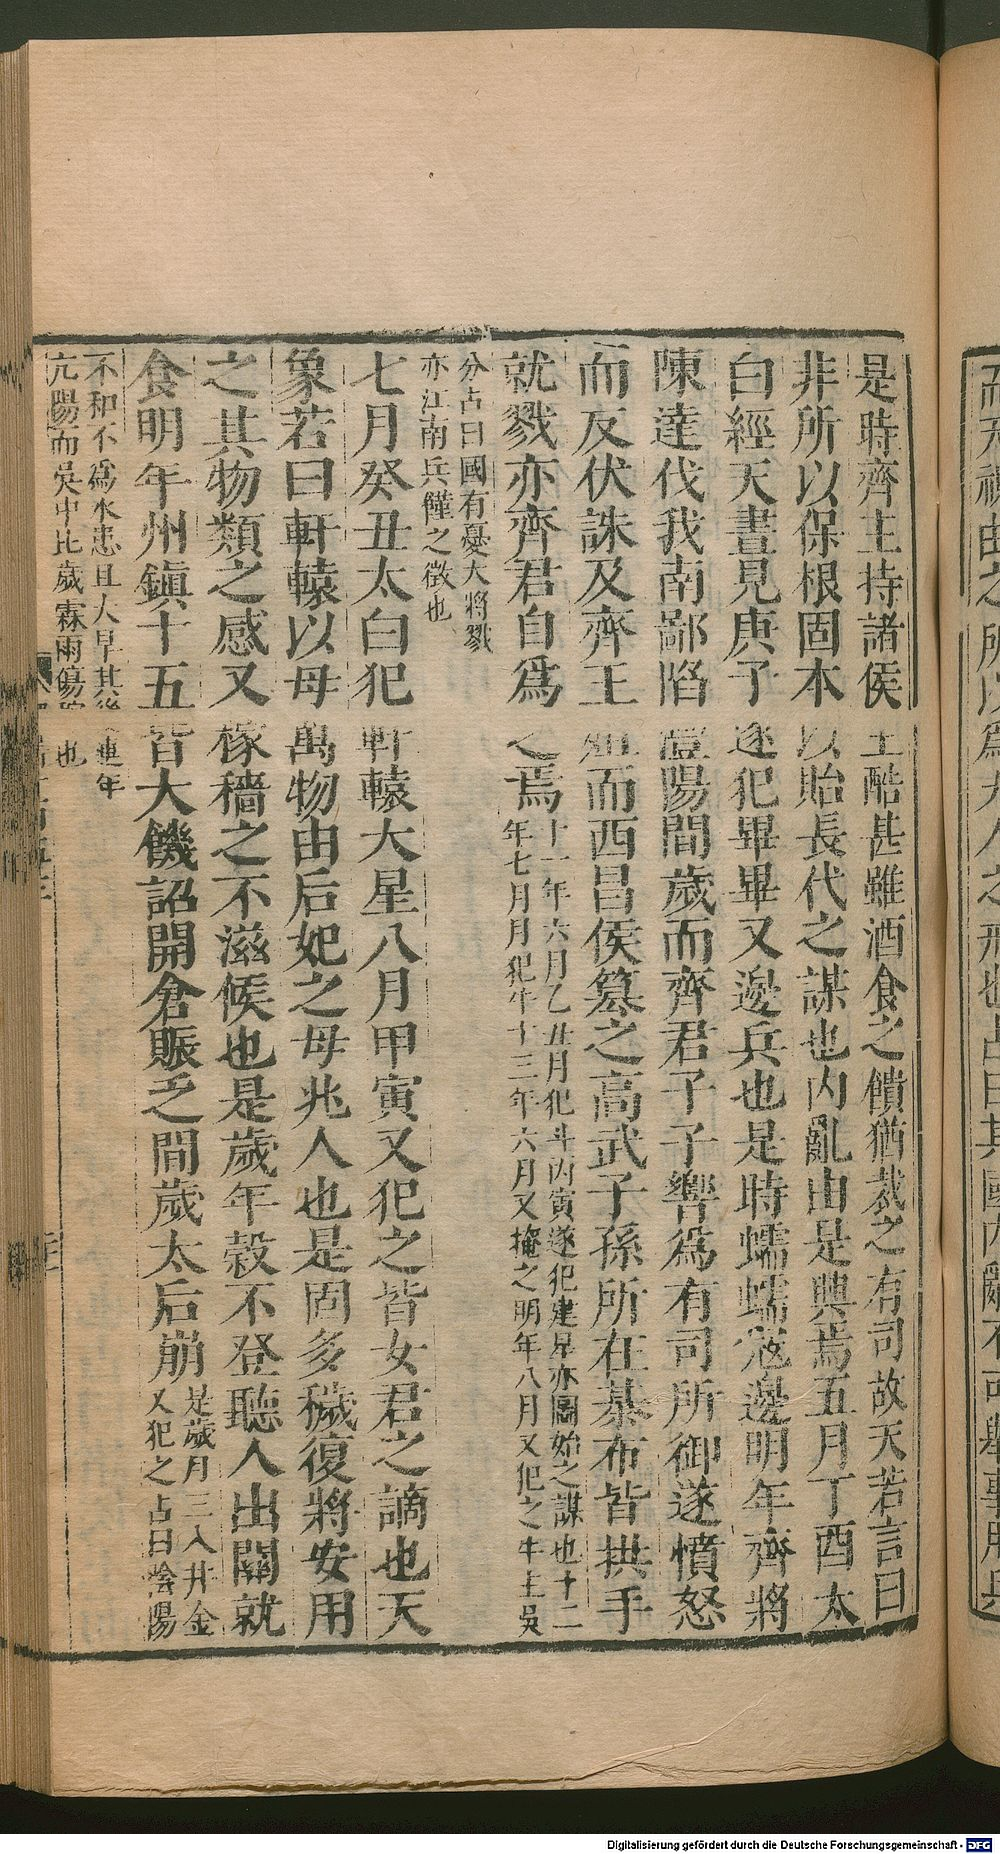 是時齊主持諸侯王酷甚雖酒食之饋猶裁之有司故天若言曰
非所以保根固本以貽長代之謀也内亂由是興焉五月丁酉太
白經天晝見庚子遂犯畢畢又邊兵也是時蠕蠕寇邊明年齊將
陳達伐我南鄙陷澧陽間歲而齊君子子響爲有司所御遂憤怒
而反伏誅及齊王殂而西昌侯篡之高武子孫所在棊布皆拱手
就戮亦齊君自爲之焉十一年六月乙丑月犯斗丙寅遂犯建星亦圖始之謀也十二
年七月月犯牛十三年六月又掩之明年八月又犯之牛主吳
分占曰國有憂大將戮
亦江南兵饉之徵也
七月癸丑太白犯軒轅大星八月甲寅又犯之皆女君之謫也天
象若曰軒轅以母萬物由后妃之母兆人也是固多穢復將安用
之其物類之感又稼穡之不滋候也是歲年穀不登聽人出關就
食明年州鎮十五皆大饑詔開倉賑乏間歲太后崩是歲月三入井金
又犯之占曰陰陽
不和不爲水患且大旱其後連年
亢陽而吳中比歲霖雨傷稼也
Digitalisierung gefördert durch die Deutsche Forschungsgemeinschaft - DFG